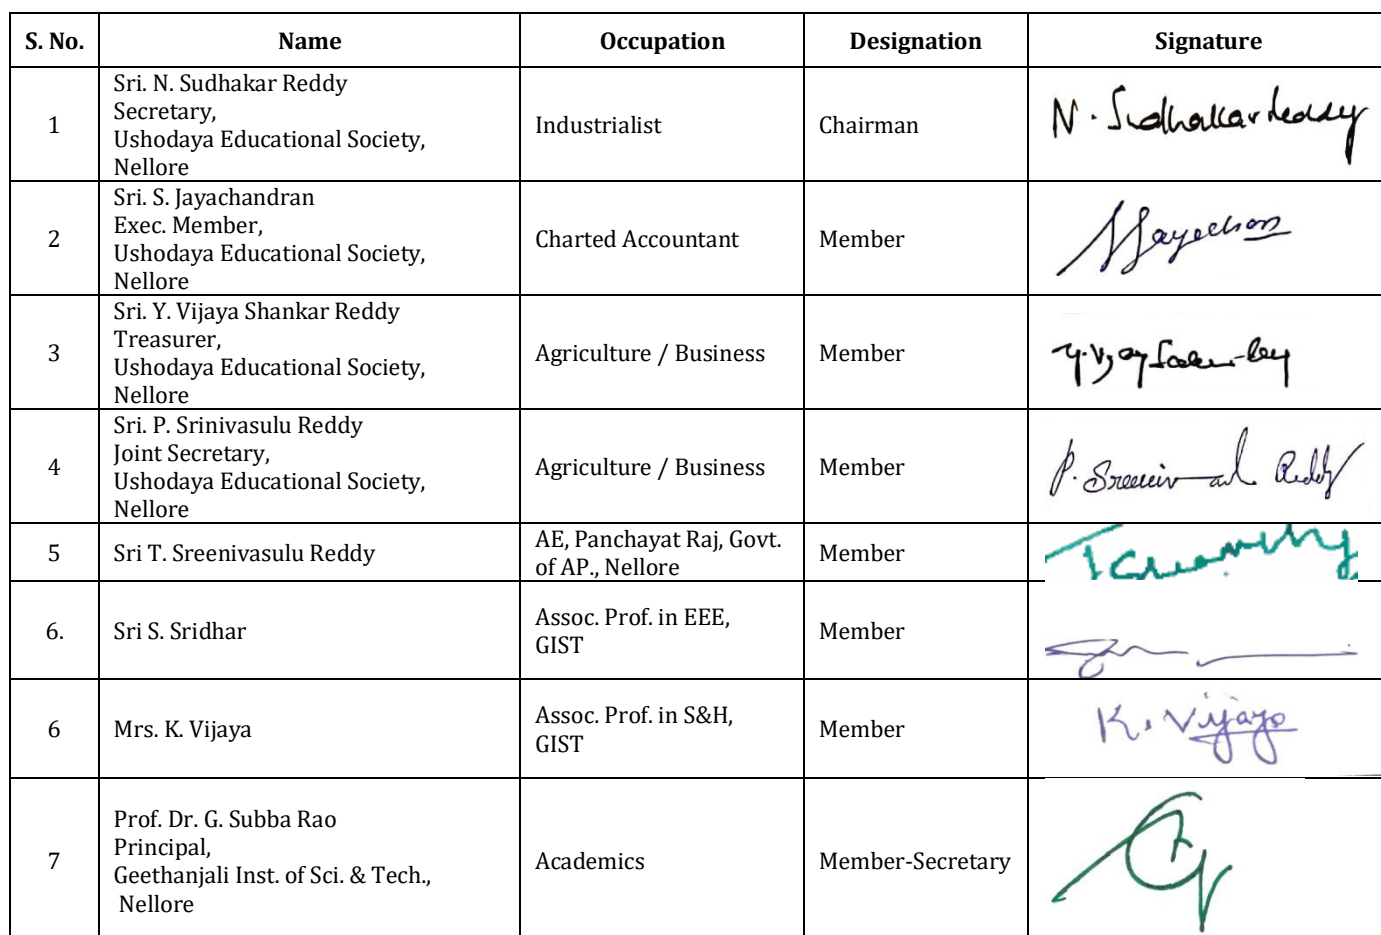 S. No. Name Occupation Designation Signature
1
Sri. N. Sudhakar Reddy
Secretary,
Ushodaya Educational Society,
Nellore
Industrialist
Chairman
N. Sudhakar Reddy
2
Sri. S. Jayachandran
Exec. Member,
Ushodaya Educational Society,
Nellore
Charted Accountant
Member
3
Sri. Y. Vijaya Shankar Reddy
Treasurer,
Ushodaya Educational Society,
Nellore
Agriculture / Business
Member
4
Sri. P. Srinivasulu Reddy
Joint Secretary,
Ushodaya Educational Society,
Nellore
Agriculture / Business
Member
P. Reddy
5
Sri T. Sreenivasulu Reddy
AE, Panchayat Raj, Govt.
of AP., Nellore
Member
6.
Sri S. Sridhar
Assoc. Prof. in EEE,
GIST
Member
6
Mrs. K. Vijaya
Assoc. Prof. in S&H,
GIST
Member
K. Vijaya
7
Prof. Dr. G. Subba Rao
Principal,
Geethanjali Inst. of Sci. & Tech.,
Nellore
Academics
Member-Secretary